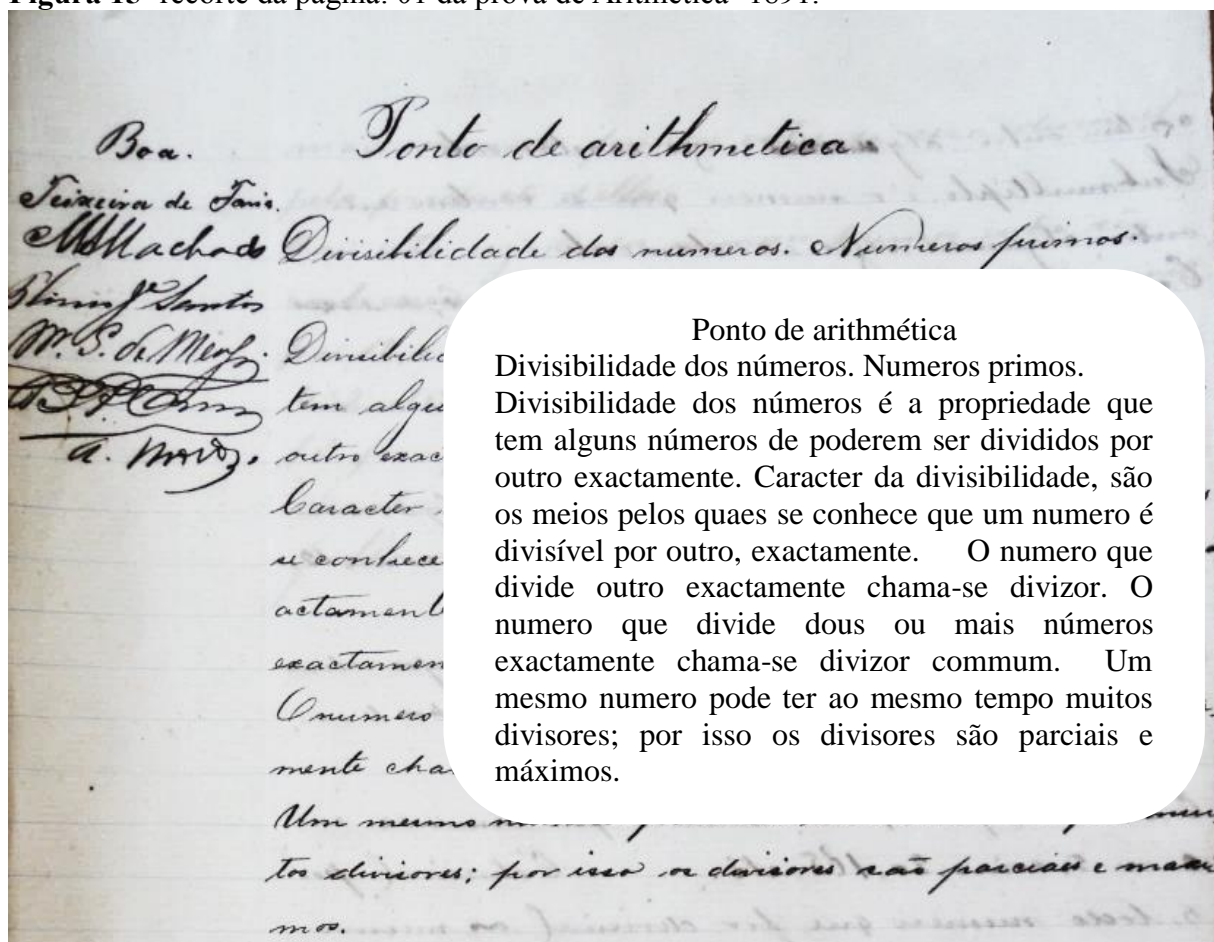 Figura 13- recorte da página: 01 da prova de Aritmética- 1891.
Boa.
Ponto de arithmetica
Teixeira de Faria.
Machado
Divisibilidade dos numeros. Numeros primos.
Santos
M. S. de
Divisibilid
tem algu
outro exac
Caracter
se conhece
actament
exactamen
O numero
mente cha
Um mesmo
tos divisores; por isso os divisores são parciais e maxi
mos.
Ponto de arithmética
Divisibilidade dos números. Numeros primos.
Divisibilidade dos números é a propriedade que
tem alguns números de poderem ser divididos por
outro exactamente. Caracter da divisibilidade, são
os meios pelos quaes se conhece que um numero é
divisível por outro, exactamente. O numero que
divide outro exactamente chama-se divizor. O
numero que divide dous ou mais números
exactamente chama-se divizor commum. Um
mesmo numero pode ter ao mesmo tempo muitos
divisores; por isso os divisores são parciais e
máximos.